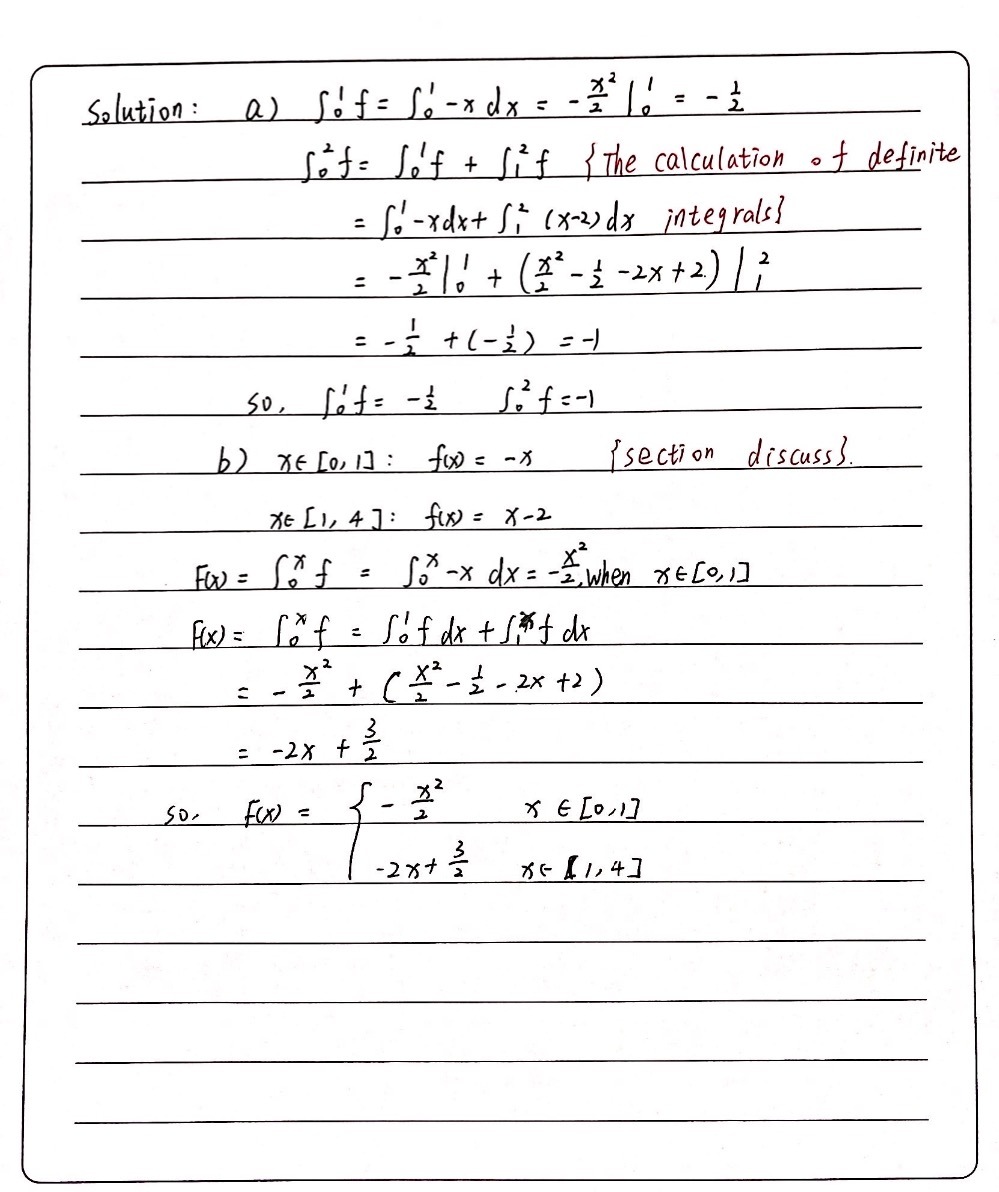 Solution: a) ∫₀¹ f = ∫₀¹ -x dx = - x²/2 |₀¹ = - 1/2
∫₀² f = ∫₀¹ f + ∫₁² f {The calculation of definite
= ∫₀¹ -x dx + ∫₁² (x-2) dx integrals}
= - x²/2 |₀¹ + (x²/2 - 1/2 - 2x + 2) |₁²
= - 1/2 + (- 1/2) = -1
so, ∫₀¹ f = - 1/2 ∫₀² f = -1
b) x∈[0,1]: f(x) = -x {section discuss}.
x∈[1,4]: f(x) = x-2
F(x) = ∫₀ˣ f = ∫₀ˣ -x dx = - x²/2, when x∈[0,1]
F(x) = ∫₀ˣ f = ∫₀¹ f dx + ∫₁ˣ f dx
= - x²/2 + (x²/2 - 1/2 - 2x + 2)
= -2x + 3/2
so, F(x) = { - x²/2 x∈[0,1]
-2x + 3/2 x∈[1,4]